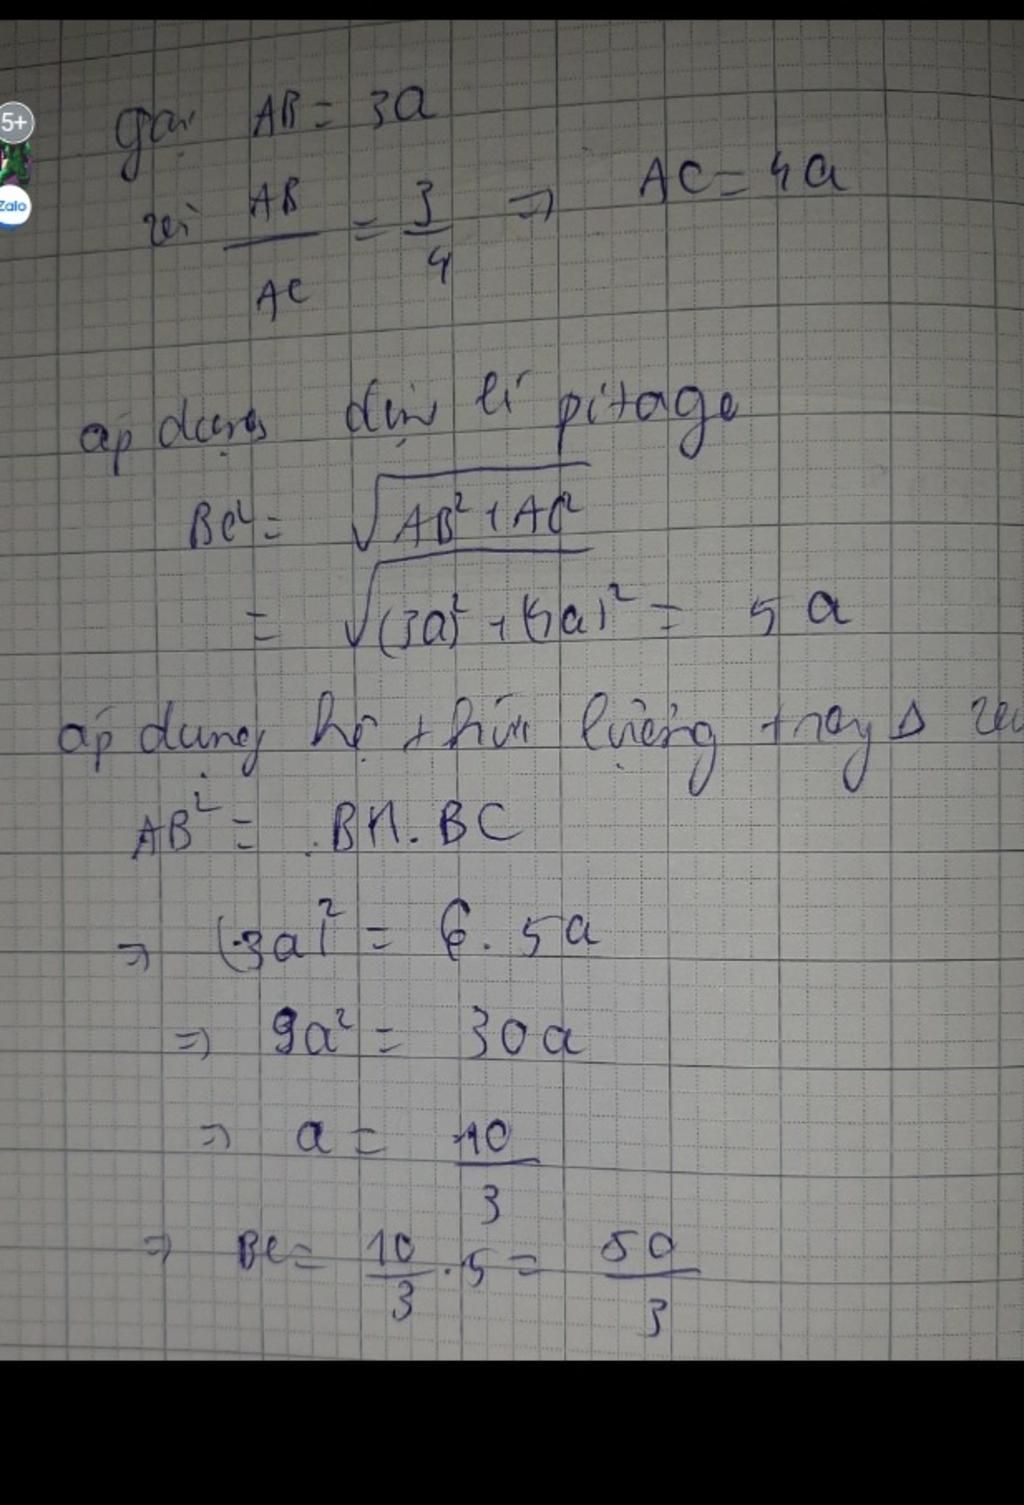 5+
gọi AB = 3a
Zalo
với AB/AC = 3/4 ⇒ AC = 4a
áp dụng định lí pitago
BC² = √(AB² + AC²)
= √((3a)² + (4a)²) = 5a
áp dụng hệ thức lượng trong Δ
AB² = BH.BC
⇒ (3a)² = 6. 5a
⇒ 9a² = 30a
⇒ a = 10/3
⇒ BC = 10/3 . 5 = 50/3